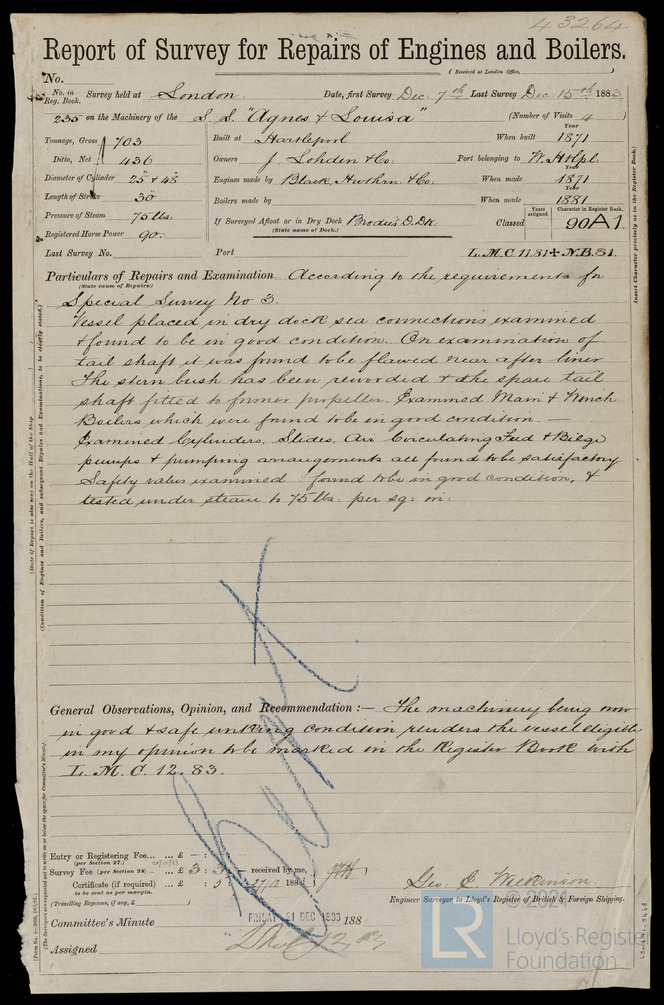 43264
Report of Survey for Repairs of Engines and Boilers.
(Received at London Office, )
No.
No. in Reg. Book. Survey held at London. Date, first Survey Dec. 7th Last Survey Dec 15th 1883
235 on the Machinery of the S.S. "Agnes & Louisa" (Number of Visits 4 )
Tonnage, Gross 703 Built at Hartlepool When built Year 1871
Ditto, Net 436 Owners J Lohden & Co: Port belonging to W. Hrtpl.
Diameter of Cylinder 25" & 48" Engines made by Black, Hwthrn & Co: When made Year 1871
Length of Stroke 30" Boilers made by When made Year 1881
Pressure of Steam 75 lbs. If Surveyed Afloat or in Dry Dock Brodie's D. Dk. Classed Years assigned. Character in Register Book. 90A1.
(State name of Dock.)
Registered Horse Power 90.
Last Survey No. Port L.M.C. 11.81 + N.B. 81.
Particulars of Repairs and Examination According to the requirements for
(State cause of Repairs)
Special Survey No 3.
Vessel placed in dry dock sea connections examined
& found to be in good condition. On examination of
tail shaft it was found to be flawed near after liner
The stern bush has been rewooded & the spare tail
shaft fitted to former propeller. Examined Main & Winch
Boilers which were found to be in good condition.
Examined Cylinders, Slides, Air Circulating Feed & Bilge
pumps & pumping arrangements all found to be satisfactory
Safety valves examined found to be in good condition, &
tested under steam to 75 lbs. per sq: in:
General Observations, Opinion, and Recommendation :— The machinery being now
in good & safe working condition renders the vessel eligible
in my opinion to be marked in the Register Book with
L. M. C. 12. 83.
Entry or Registering Fee... ... £ — : :
(per Section 27.)
Survey Fee (per Section 28) .. ... £ 3 : 3 : — received by me,
Certificate (if required) ... £ : 5 : 27/12 188
to be sent as per margin.
(Travelling Expenses, if any, £ )
Geo. E Wilkinson.
Engineer Surveyor to Lloyd's Register of British & Foreign Shipping.
Committee's Minute FRIDAY 21 DEC 1883 188
Assigned
© 2021
LR
Lloyd's Register
Foundation
Insert Character precisely as in the Register Book.)
(State if Report is also sent on the Hull of the Ship
(Condition of Engines and Boilers, and subsequent Repairs and Examinations, to be clearly stated.)